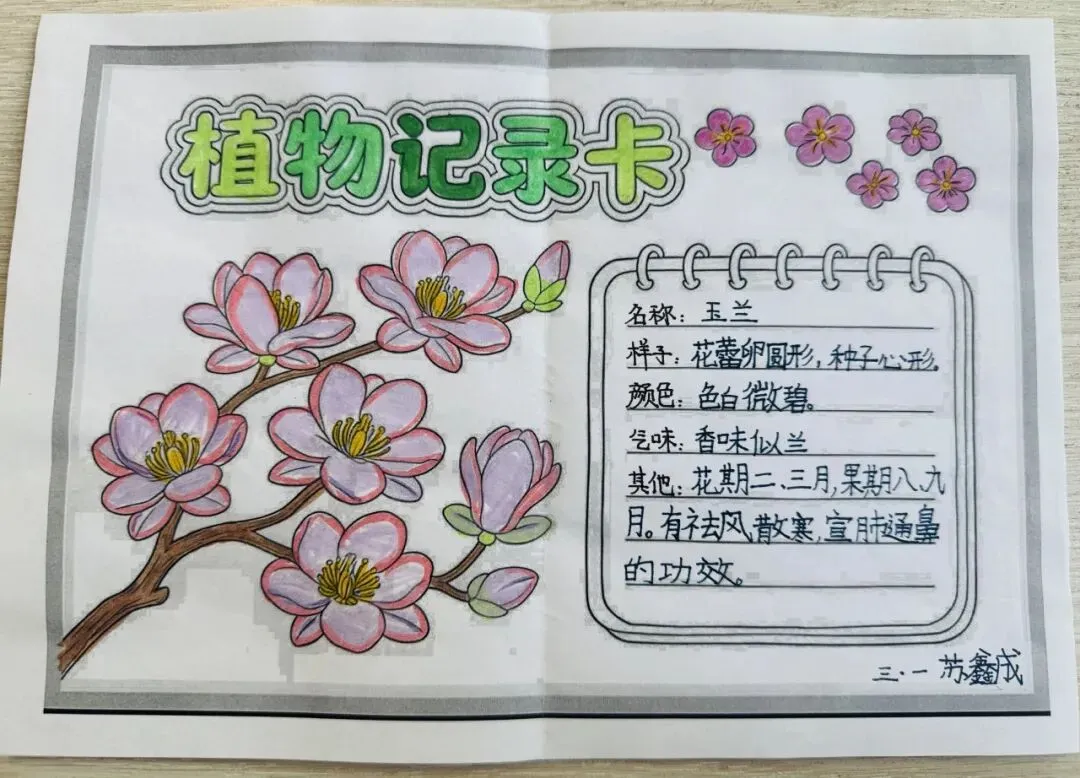 植物记录卡
名称：玉兰
样子：花蕾卵圆形，种子心形。
颜色：色白微碧。
气味：香味似兰
其他：花期二、三月，果期八、九
月。有祛风散寒，宣肺通鼻
的功效。
三.一 苏鑫成